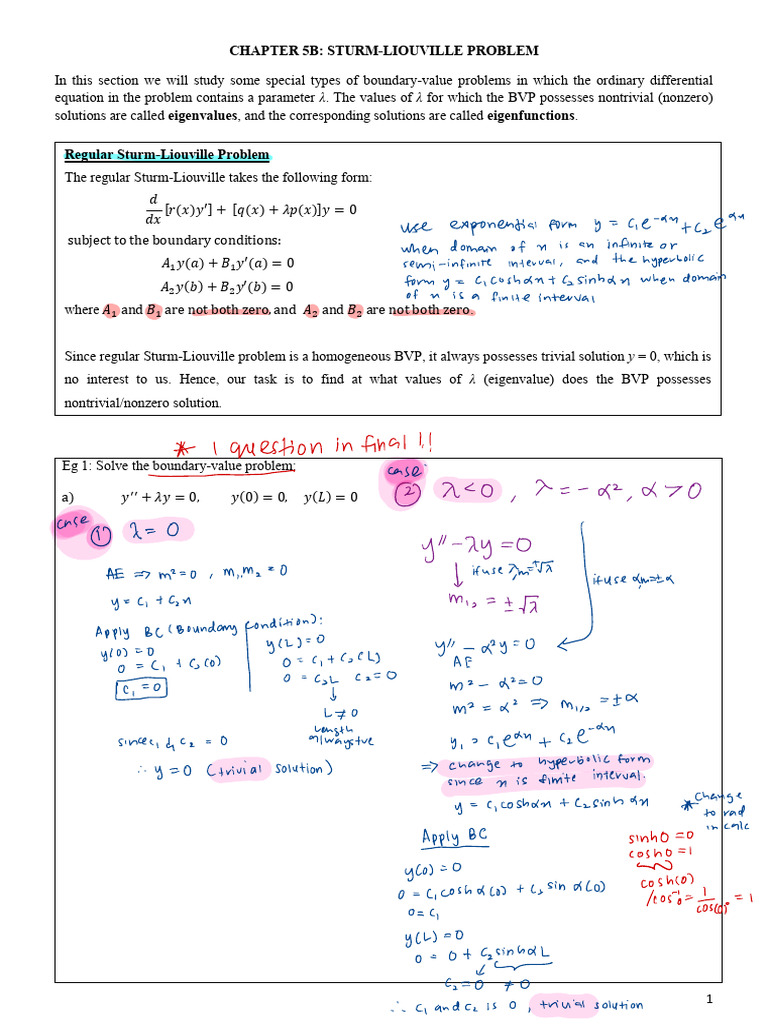 CHAPTER 5B: STURM-LIOUVILLE PROBLEM
In this section we will study some special types of boundary-value problems in which the ordinary differential
equation in the problem contains a parameter λ. The values of λ for which the BVP possesses nontrivial (nonzero)
solutions are called eigenvalues, and the corresponding solutions are called eigenfunctions.
Regular Sturm-Liouville Problem
The regular Sturm-Liouville takes the following form:
d/dx [r(x)y′] + [q(x) + λp(x)]y = 0
subject to the boundary conditions:
A₁y(a) + B₁y′(a) = 0
A₂y(b) + B₂y′(b) = 0
where A₁ and B₁ are not both zero, and A₂ and B₂ are not both zero.
use exponential form y = c₁e^-αx + c₂e^αx
when domain of x is an infinite or
semi-infinite interval, and the hyperbolic
form y = c₁coshαx + c₂sinhαx when domain
of x is a finite interval
Since regular Sturm-Liouville problem is a homogeneous BVP, it always possesses trivial solution y = 0, which is
no interest to us. Hence, our task is to find at what values of λ (eigenvalue) does the BVP possesses
nontrivial/nonzero solution.
* 1 question in final !!
Eg 1: Solve the boundary-value problem:
a) y′′ + λy = 0, y(0) = 0, y(L) = 0
case
① λ = 0
AE ⇒ m² = 0 , m₁, m₂ = 0
y = c₁ + c₂x
Apply BC (Boundary Condition):
y(0) = 0
0 = c₁ + c₂(0)
c₁ = 0
y(L) = 0
0 = c₁ + c₂(L)
0 = c₂L c₂ = 0
↓
L ≠ 0
Length
always +ve
since c₁ & c₂ = 0
∴ y = 0 (trivial solution)
case
② λ < 0 , λ = -α², α > 0
y″ - λy = 0
↓ if use λ, m = ±√λ
m₁,₂ = ±√λ
if use α, m = ±α
y″ - α²y = 0
AE
m² - α² = 0
m² = α² ⇒ m₁,₂ = ±α
y₁ = c₁e^αx + c₂e^-αx
⇒ change to hyperbolic form
since x is finite interval.
y = c₁coshαx + c₂sinhαx
Apply BC
y(0) = 0
0 = c₁coshα(0) + c₂sin α(0)
0 = c₁
y(L) = 0
0 = 0 + c₂sinhαL
c₂ = 0 ≠ 0
∴ c₁ and c₂ is 0 , trivial solution
* Change
to rad
in calc
sinh0 = 0
cosh0 = 1
cosh(0)
/cos⁻¹0 = 1/cos(0)° = 1
1